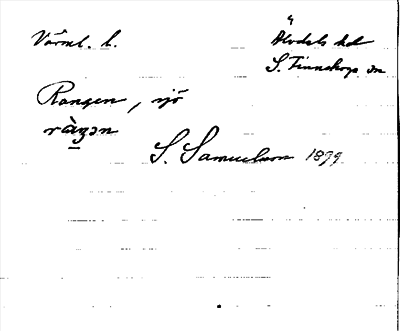 Värml. l.
Älvdals hd
S. Finnskoga sn
Rangen, sjö
ràŋən
S. Samuelsson 1899